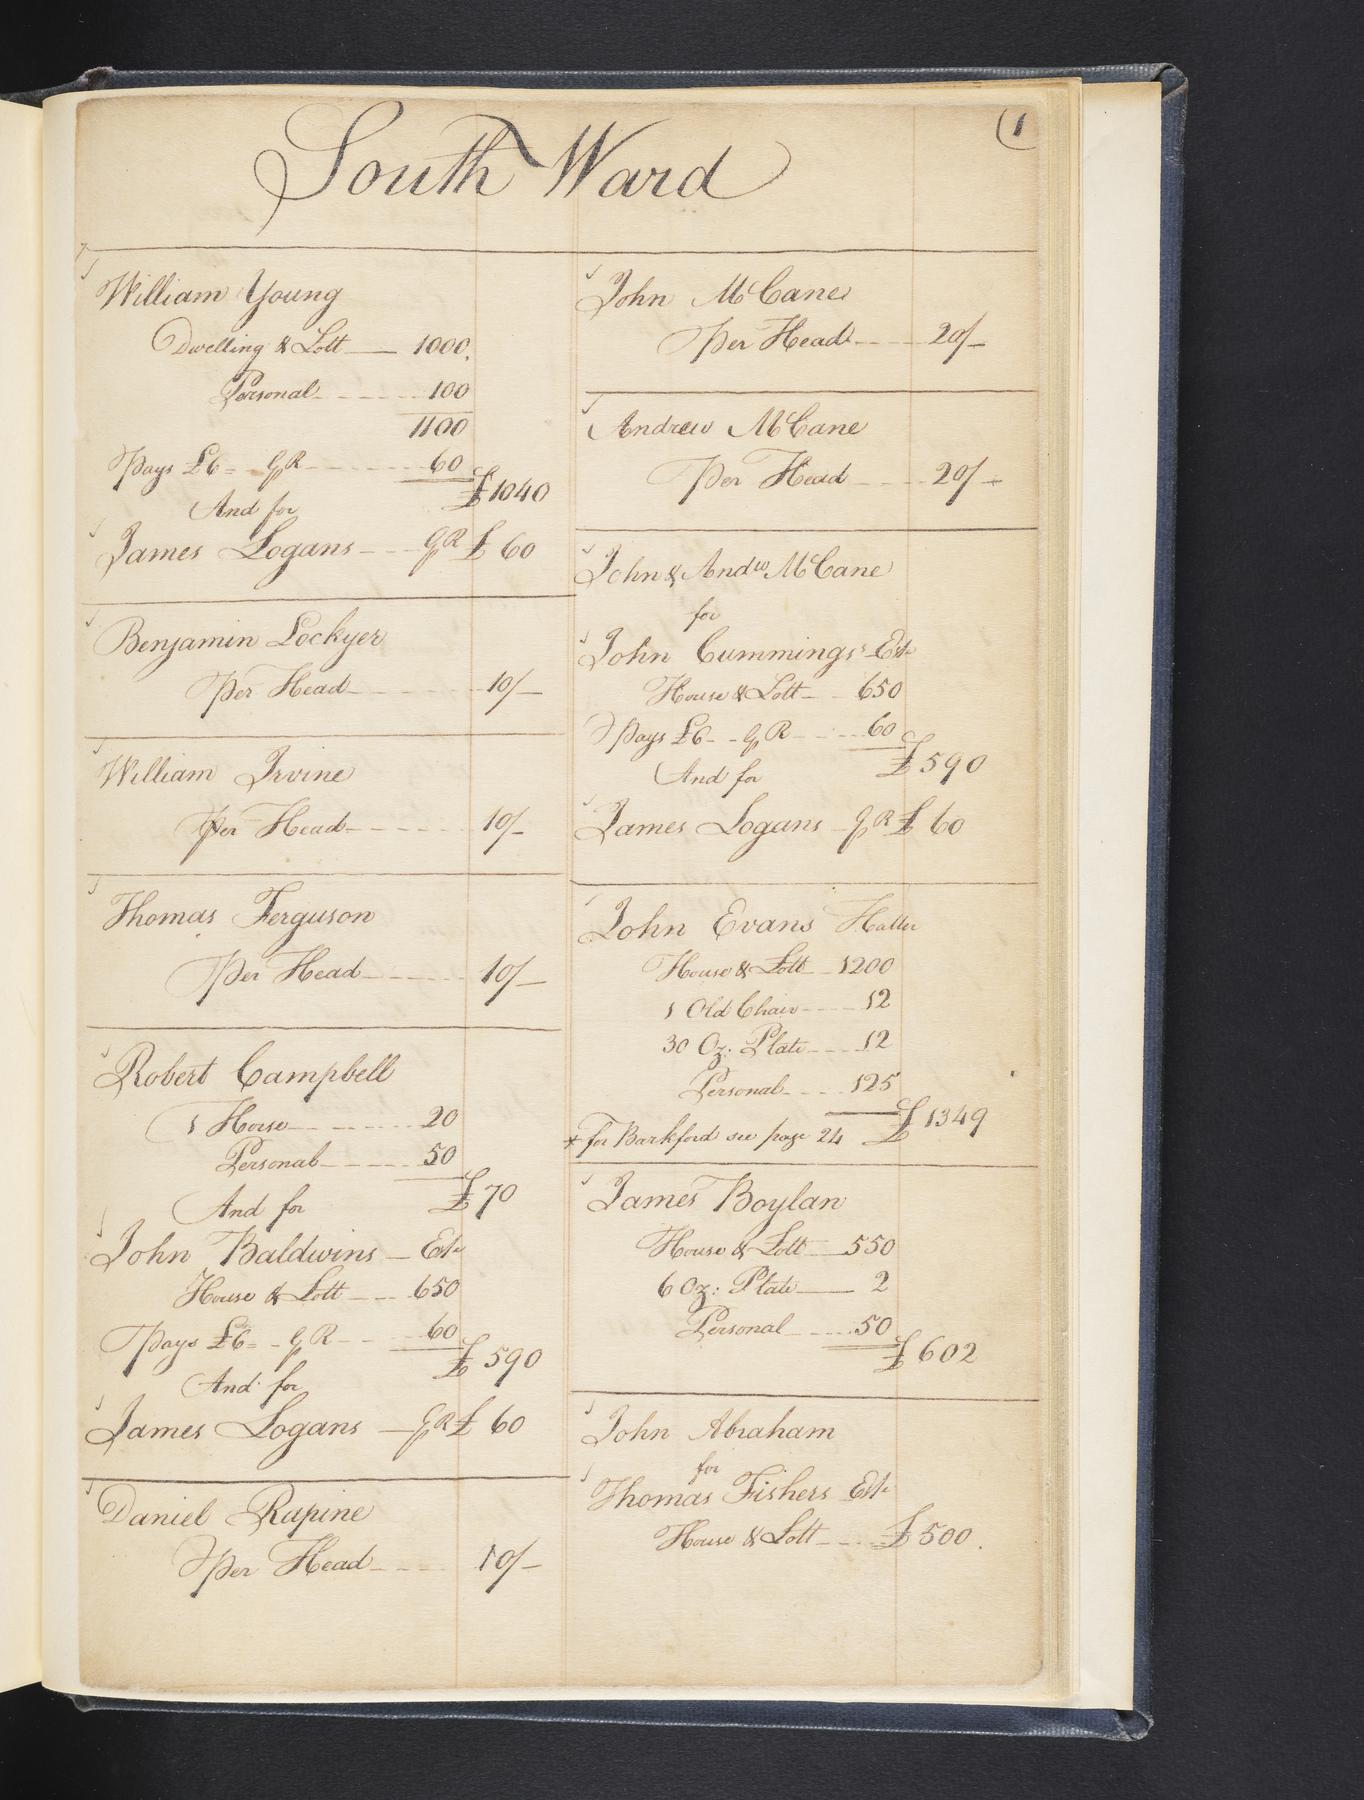 (1
South Ward
William Young
Dwelling & Lott 1000.
Personal 100
1100
Pays £6 GR 60
£1040
And for
James Logans GR £ 60
Benjamin Lockyer
Per Head 10/-
William Irvine
Per Head 10/-
Thomas Ferguson
Per Head 10/-
Robert Campbell
1 Horse 20
Personal 50
£70
And for
John Baldwins Est.
House & Lott 650
Pays £6 GR 60
£590
And for
James Logans GR £ 60
Daniel Rapine
Per Head 10/-
John McCane
Per Head 20/-
Andrew McCane
Per Head 20/-
John & Andw McCane
for
John Cummings Est.
House & Lott 650
Pays £6 GR 60
£590
And for
James Logans GR £ 60
John Evans Hatter
House & Lott 1200
1 Old Chair 12
30 Oz: Plate 12
Personal 125
£1349
* for Barkford see page 24
James Boylan
House & Lott 550
6 Oz: Plate 2
Personal 50
£602
John Abraham
for
Thomas Fishers Est.
House & Lott £500.